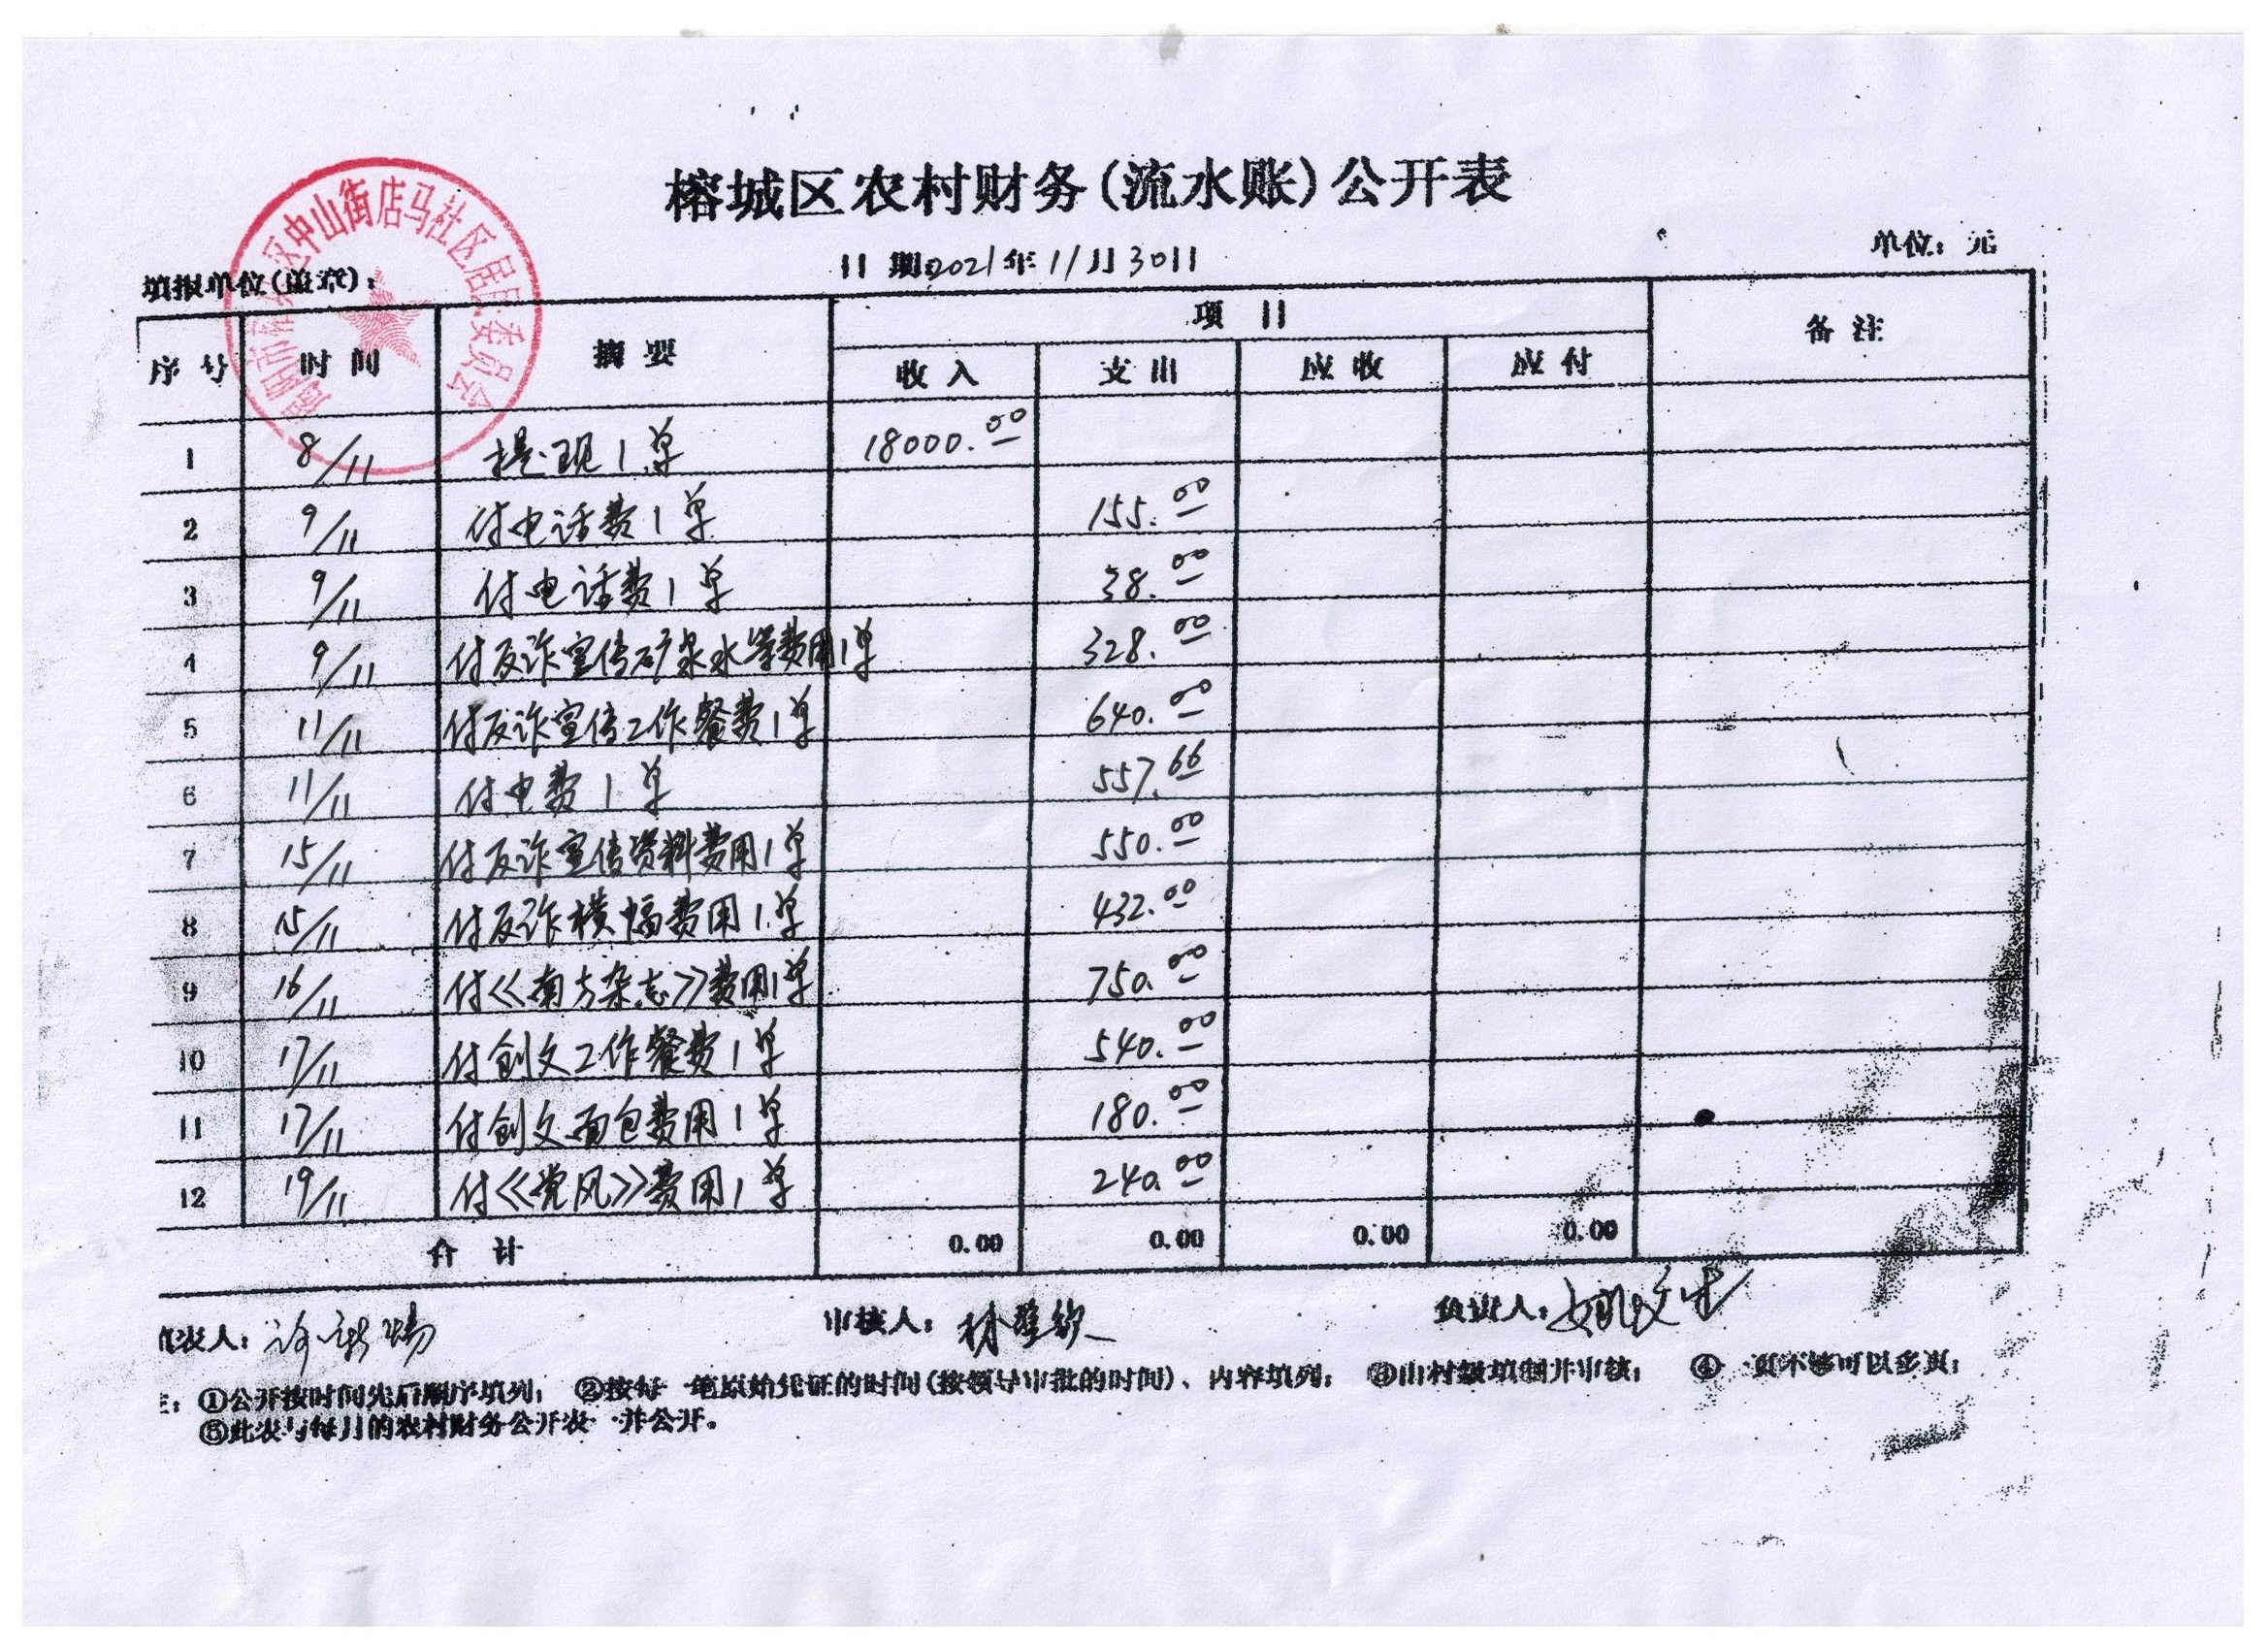 榕城区农村财务(流水账)公开表
日期:2021年11月30日
单位：元
填报单位(盖章)：
区中山街店马社区居民委员会
序号 时间 摘要 项目 备注
收入 支出 应收 应付
1 8/11 提现1单 18000.00
2 9/11 付电话费1单 155.00
3 9/11 付电话费1单 38.00
4 9/11 付反诈宣传矿泉水等费用1单 328.00
5 11/11 付反诈宣传工作餐费1单 640.00
6 11/11 付电费1单 557.66
7 15/11 付反诈宣传资料费用1单 550.00
8 15/11 付反诈横幅费用1单 432.00
9 16/11 付《南方杂志》费用1单 750.00
10 17/11 付创文工作餐费1单 540.00
11 17/11 付创文面包费用1单 180.00
12 19/11 付《党风》费用1单 240.00
合计 0.00 0.00 0.00 0.00
表人： 审核人： 负责人：
①公开按时间先后顺序填列； ②按每一笔原始凭证的时间(按领导审批的时间)、内容填列； ③由村级填制并审核； ④一页不够可以多页；
⑤此表与每月的农村财务公开表一并公开。